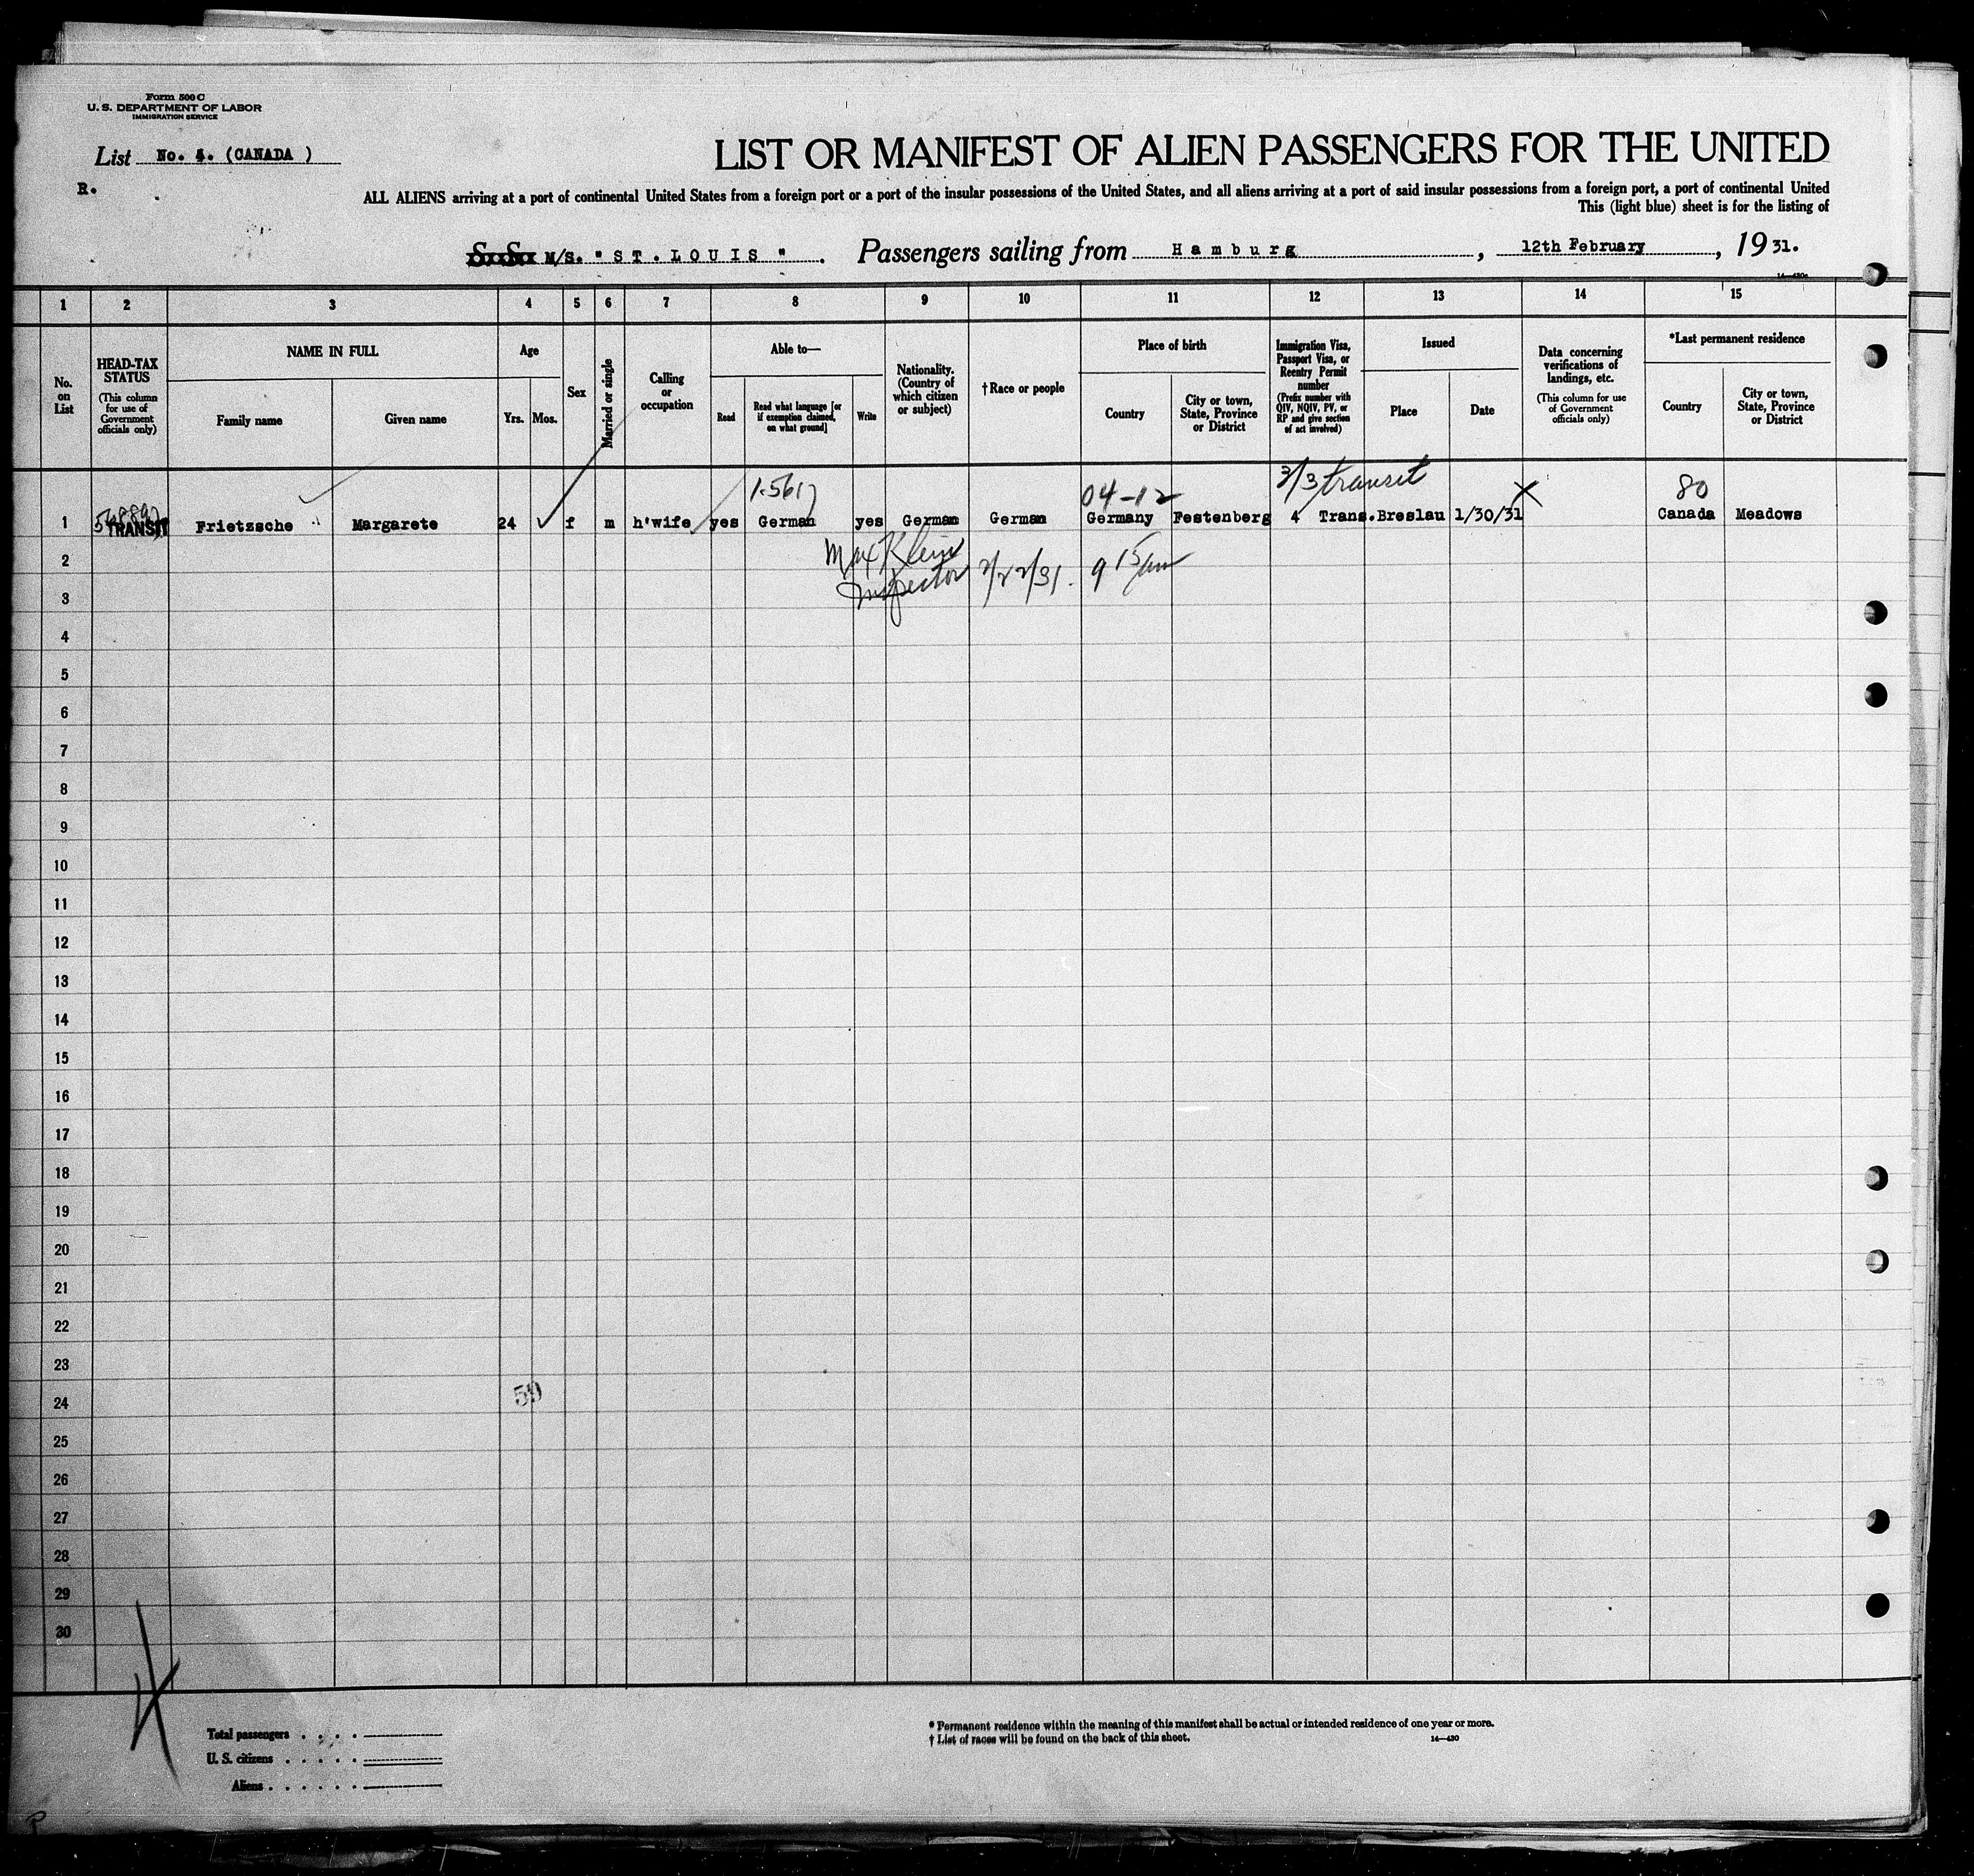 Form 500 C
U. S. DEPARTMENT OF LABOR
IMMIGRATION SERVICE
List No. 4. (CANADA )
R.
LIST OR MANIFEST OF ALIEN PASSENGERS FOR THE UNITED
ALL ALIENS arriving at a port of continental United States from a foreign port or a port of the insular possessions of the United States, and all aliens arriving at a port of said insular possessions from a foreign port, a port of continental United
This (light blue) sheet is for the listing of
S. S. M/S. "ST. LOUIS". Passengers sailing from Hamburg, 12th February, 1931.
1 2 3 4 5 6 7 8 9 10 11 12 13 14 15
No. on List
HEAD-TAX STATUS (This column for use of Government officials only)
NAME IN FULL
Family name Given name
Age
Yrs. Mos.
Sex
Married or single
Calling or occupation
Able to—
Read Read what language [or if exemption claimed, on what ground] Write
Nationality. (Country of which citizen or subject)
† Race or people
Place of birth
Country City or town, State, Province or District
Immigration Visa, Passport Visa, or Reentry Permit number (Prefix number with QIV, NQIV, PV, or RP and give section of act involved)
Issued
Place Date
Data concerning verifications of landings, etc. (This column for use of Government officials only)
*Last permanent residence
Country City or town, State, Province or District
04-12 3/3 transit 80
1 TRANSIT Frietzsche Margarete 24 f m h'wife yes German yes German German Germany Festenberg 4 Trans. Breslau 1/30/31 X Canada Meadows
2 Max Klein
3 Inspector 2/22/31. 9 15 am
4
5
6
7
8
9
10
11
12
13
14
15
16
17
18
19
20
21
22
23
24
25
26
27
28
29
30
Total passengers . . . .
U. S. citizens . . . . .
Aliens . . . . . .
* Permanent residence within the meaning of this manifest shall be actual or intended residence of one year or more.
† List of races will be found on the back of this sheet. 14—430